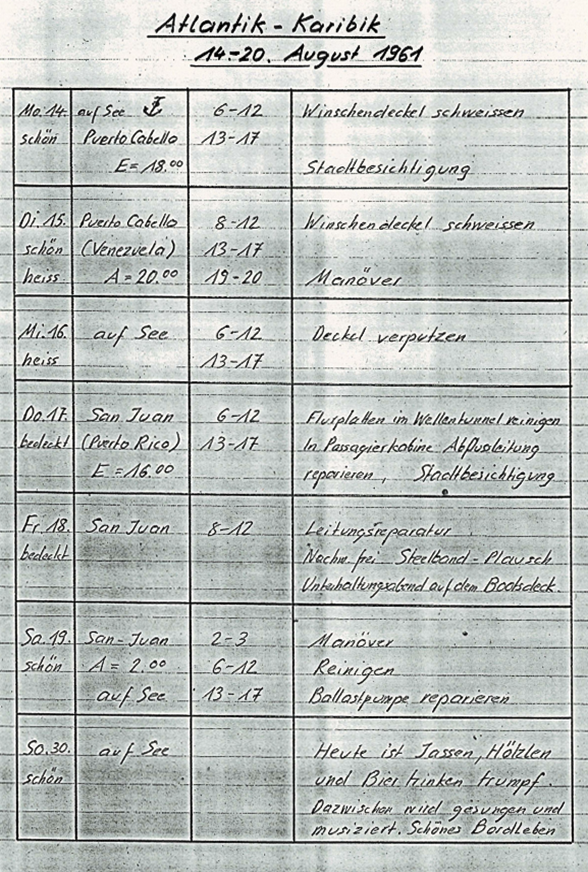 Atlantik - Karibik
14-20. August 1961
Mo. 14. auf See 6-12 Winschendeckel schweissen
schön Puerto Cabello 13-17
E = 18.00 Stadtbesichtigung
Di. 15. Puerto Cabello 8-12 Winschendeckel schweissen
schön (Venezuela) 13-17
heiss A = 20.00 19-20 Manöver
Mi. 16. auf See 6-12 Deckel verputzen
heiss 13-17
Do. 17. San Juan 6-12 Flurplatten im Wellentunnel reinigen
bedeckt (Puerto Rico) 13-17 In Passagierkabine Abflusleitung
E = 16.00 reparieren, Stadtbesichtigung
Fr. 18. San Juan 8-12 Leitungsreparatur
bedeckt Nachm. frei Steelband - Plausch
Unterhaltungsabend auf dem Bootsdeck.
Sa. 19. San-Juan 2-3 Manöver
schön A = 2.00 6-12 Reinigen
auf See 13-17 Ballastpumpe reparieren
So. 30. auf See Heute ist Jassen, Hölzlen
schön und Bier trinken trumpf.
Dazwischen wird gesungen und
musiziert. Schönes Bordleben